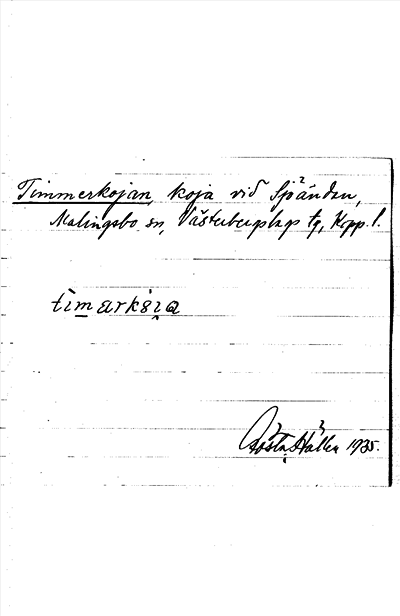 Timmerkojan, koja vid Sjöändan,
Malingsbo sn, Västerbergslags tg, Kopp. l.
Gösta Hållén 1935.